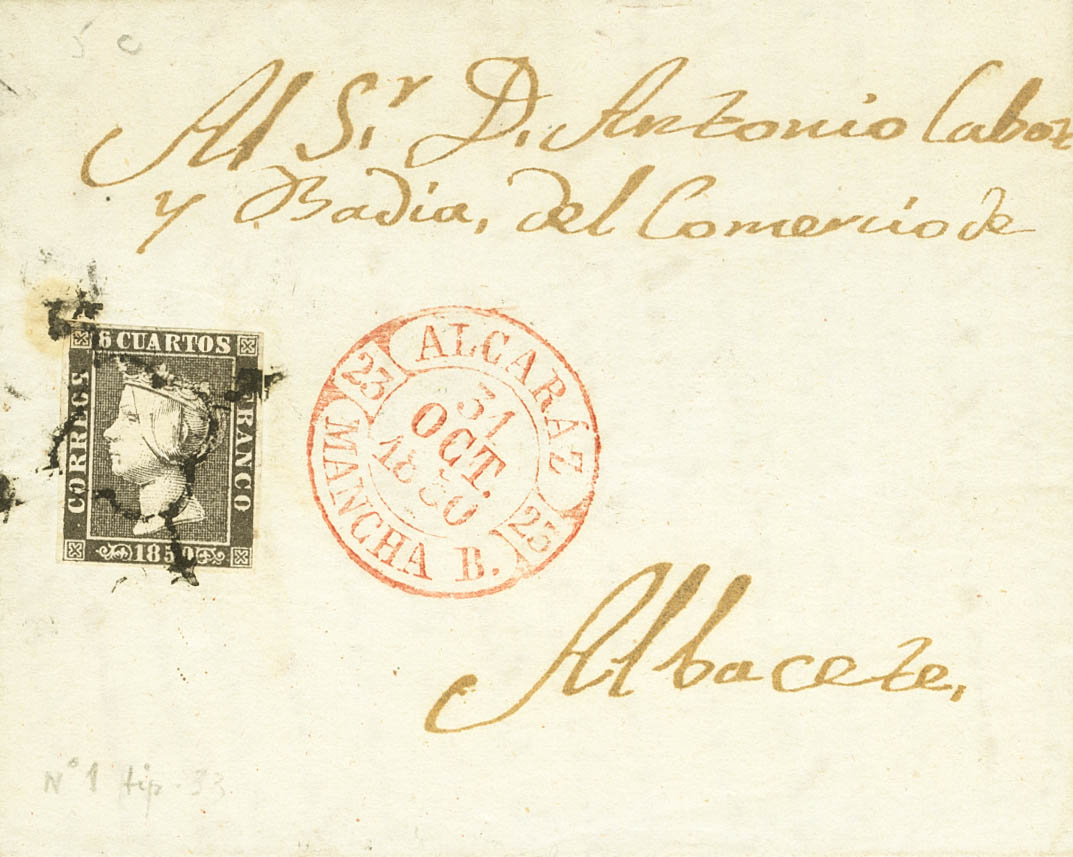 5 c
Al S.r D. Antonio Cabot
y Badia, del Comercio de
6 CUARTOS
CORREOS
FRANCO
1850
ALCARÁZ
23
31
OCT.
1850
MANCHA B.
23
Albacete,
Nº 1 tip. 33